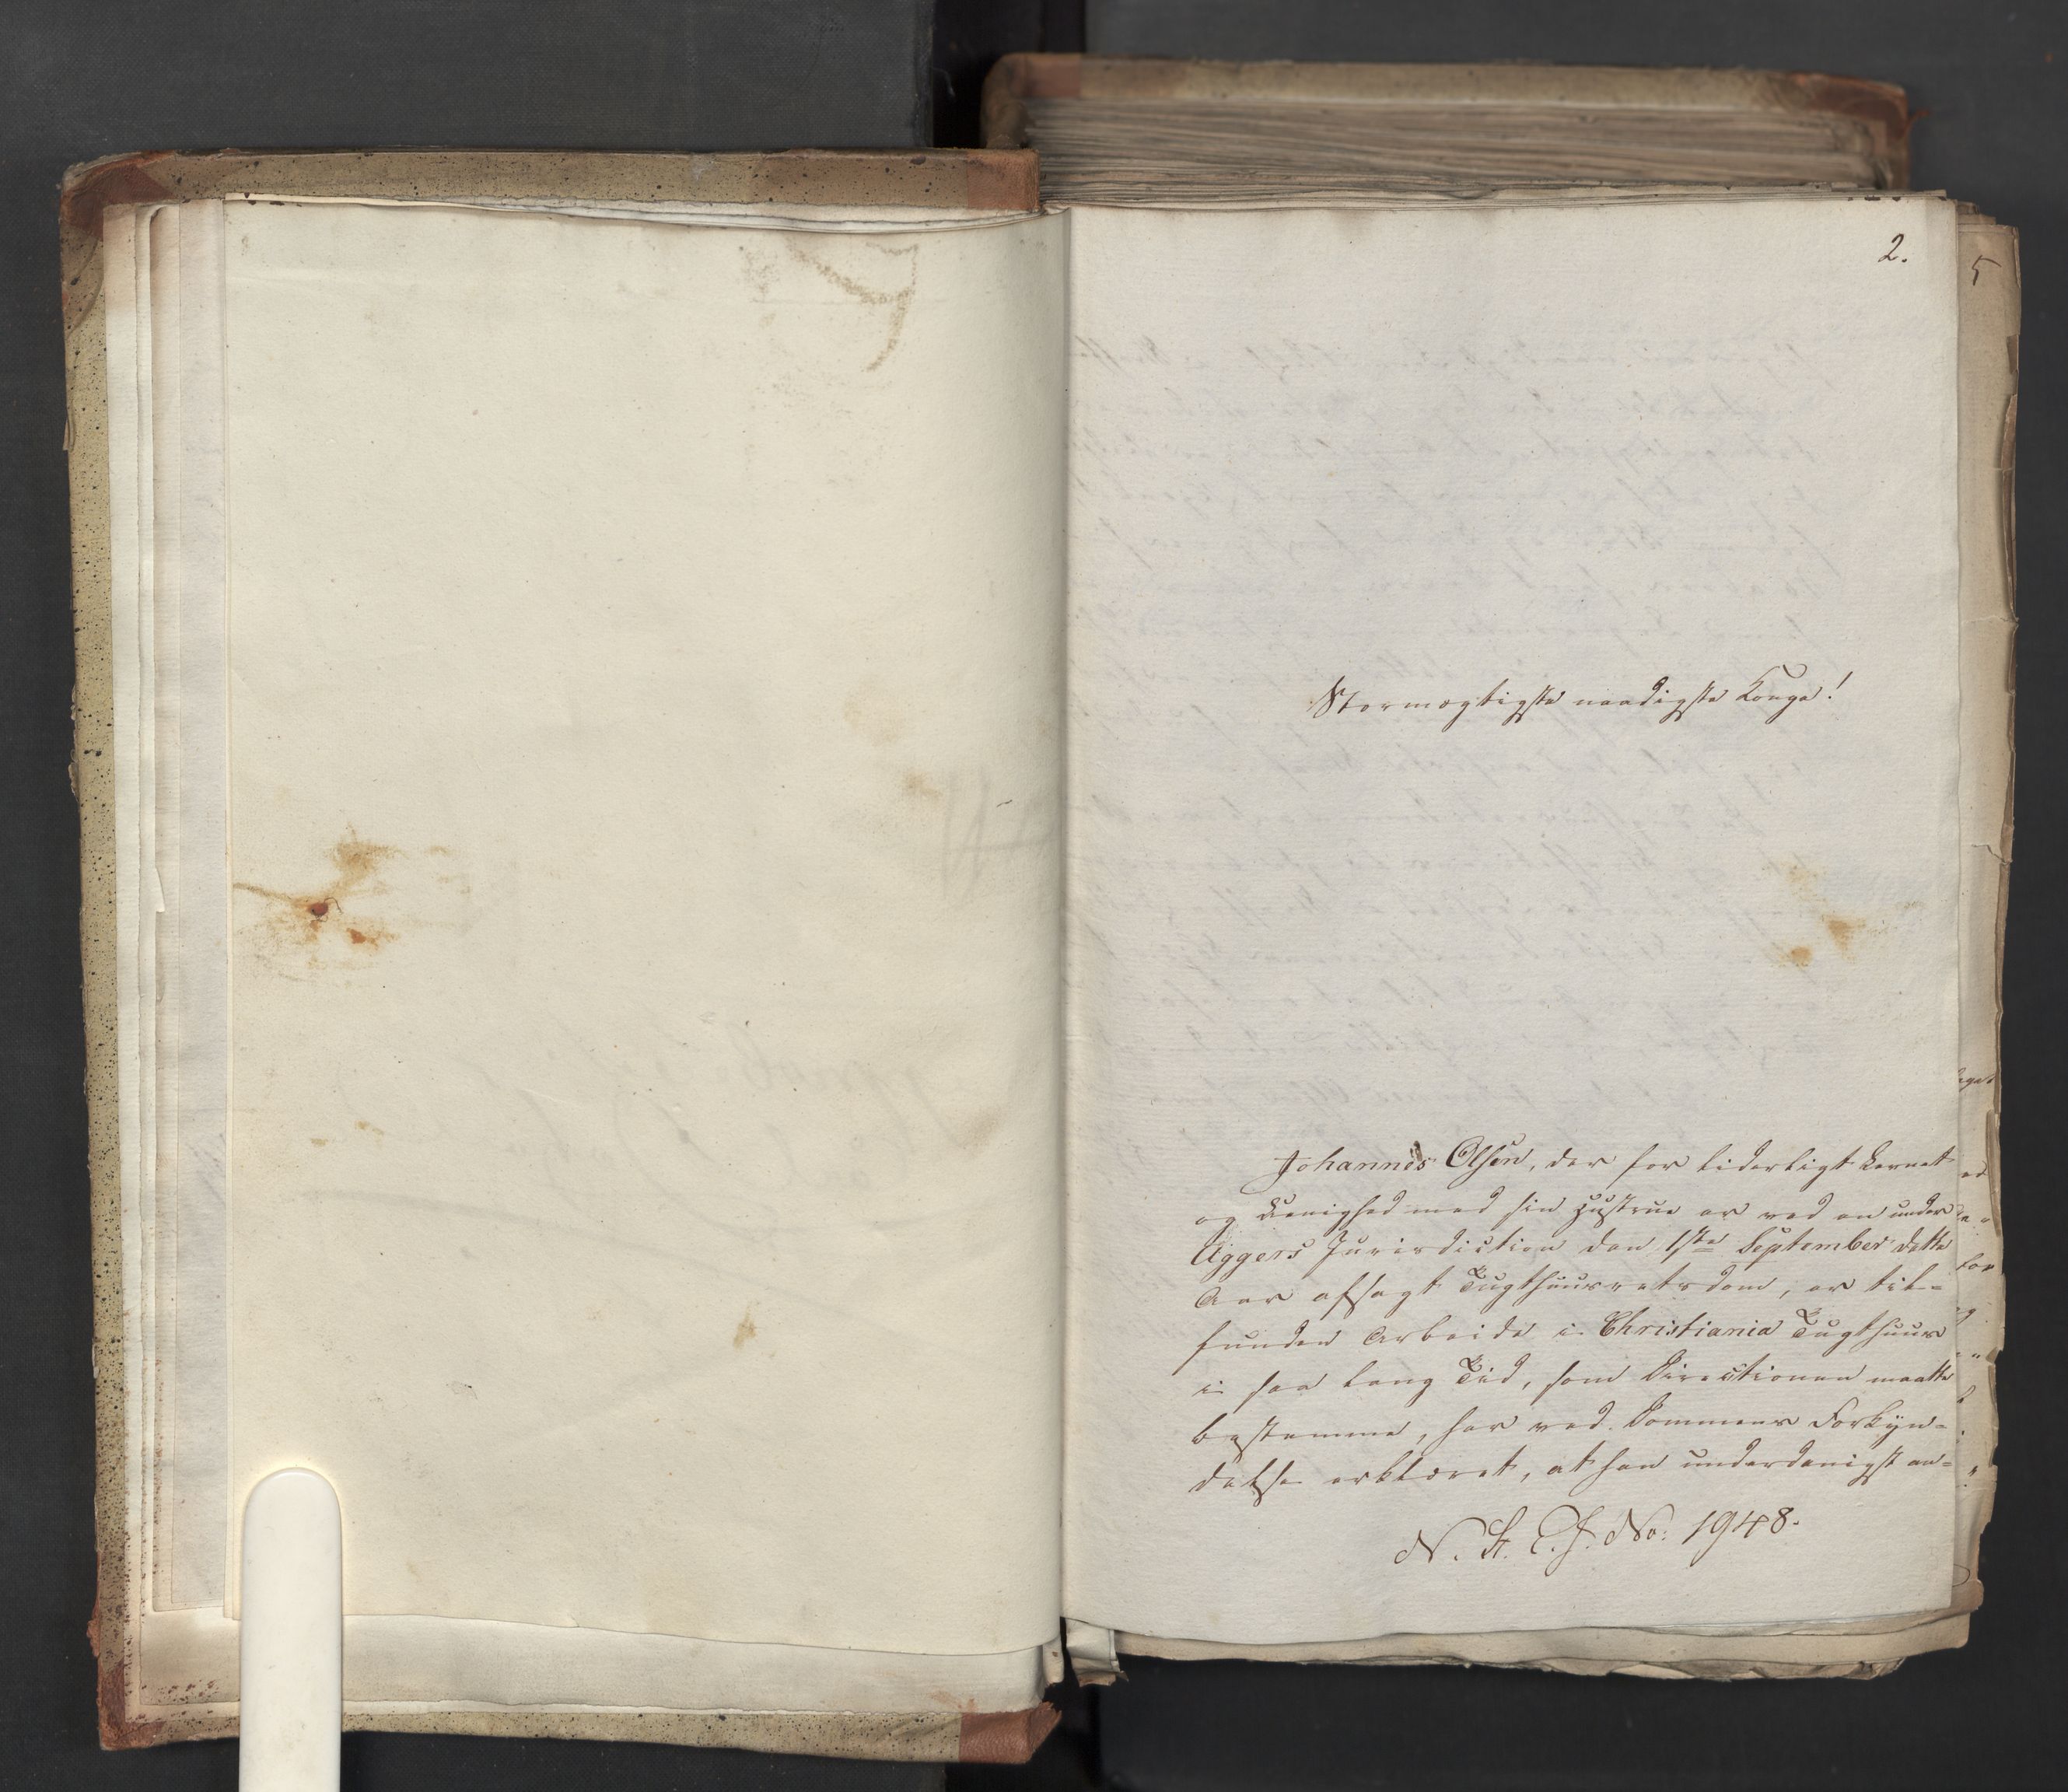 2.
5
Stormægtigste naadigste Konge!
Johannes Olsen, der for liderligt Levnet
og Uenighed med sin Hustrue er ved en under
Aggers Jurisdiction den 1ste September dette
Aar afsagt Tugthuusretsdom, er til-
funden Arbeide i Christiania Tugthuus
i saa lang Tid, som Directionen maatte
bestemme, har ved Dommens Forkyn-
delse erklæret, at han underdanigst an-
N. St. C. J. No: 1948.